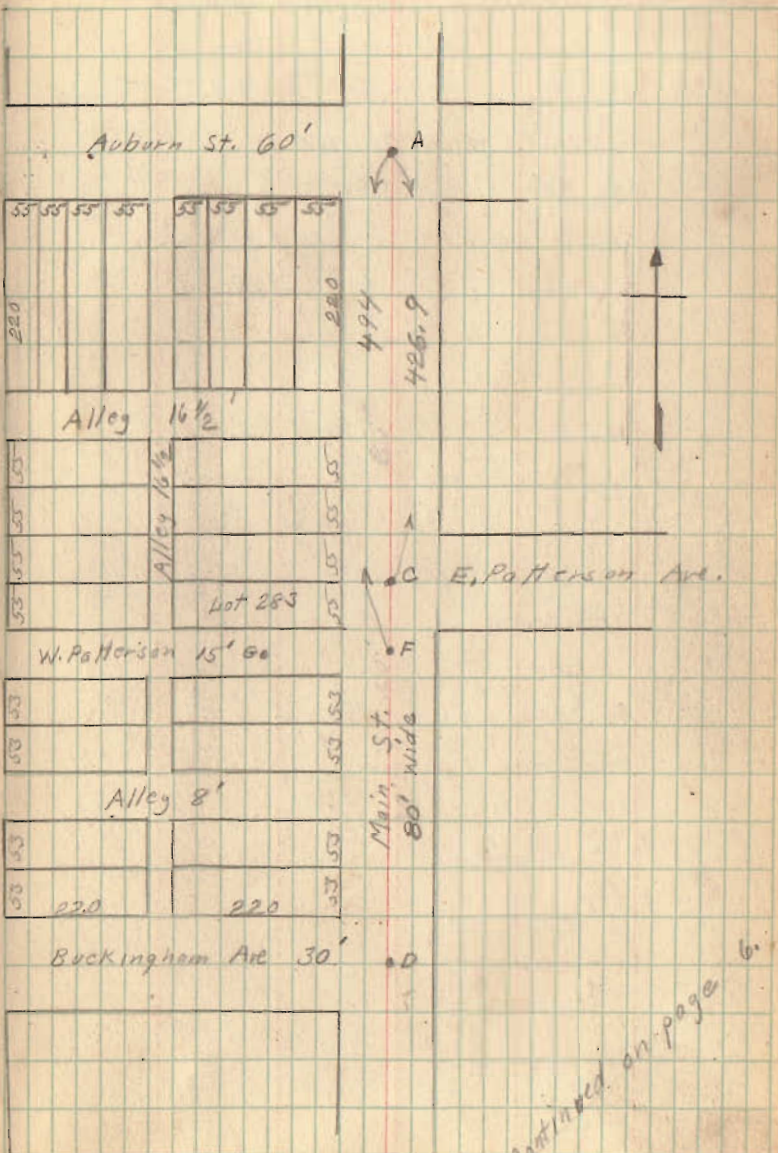 Auburn St. 60'
A
55 55 55 55 55 55 55 55
220 220 494 426.9
Alley 16 1/2'
Alley 16 1/2
55 55
55 55
55 55
55 55
Lot 283
C E. Patterson Ave.
W. Patterson 15'
F
53 53
53 53
Main St.
80' Wide
Alley 8'
53 53
53 53
220 220
Buckingham Ave 30'
D
Continued on page 6.